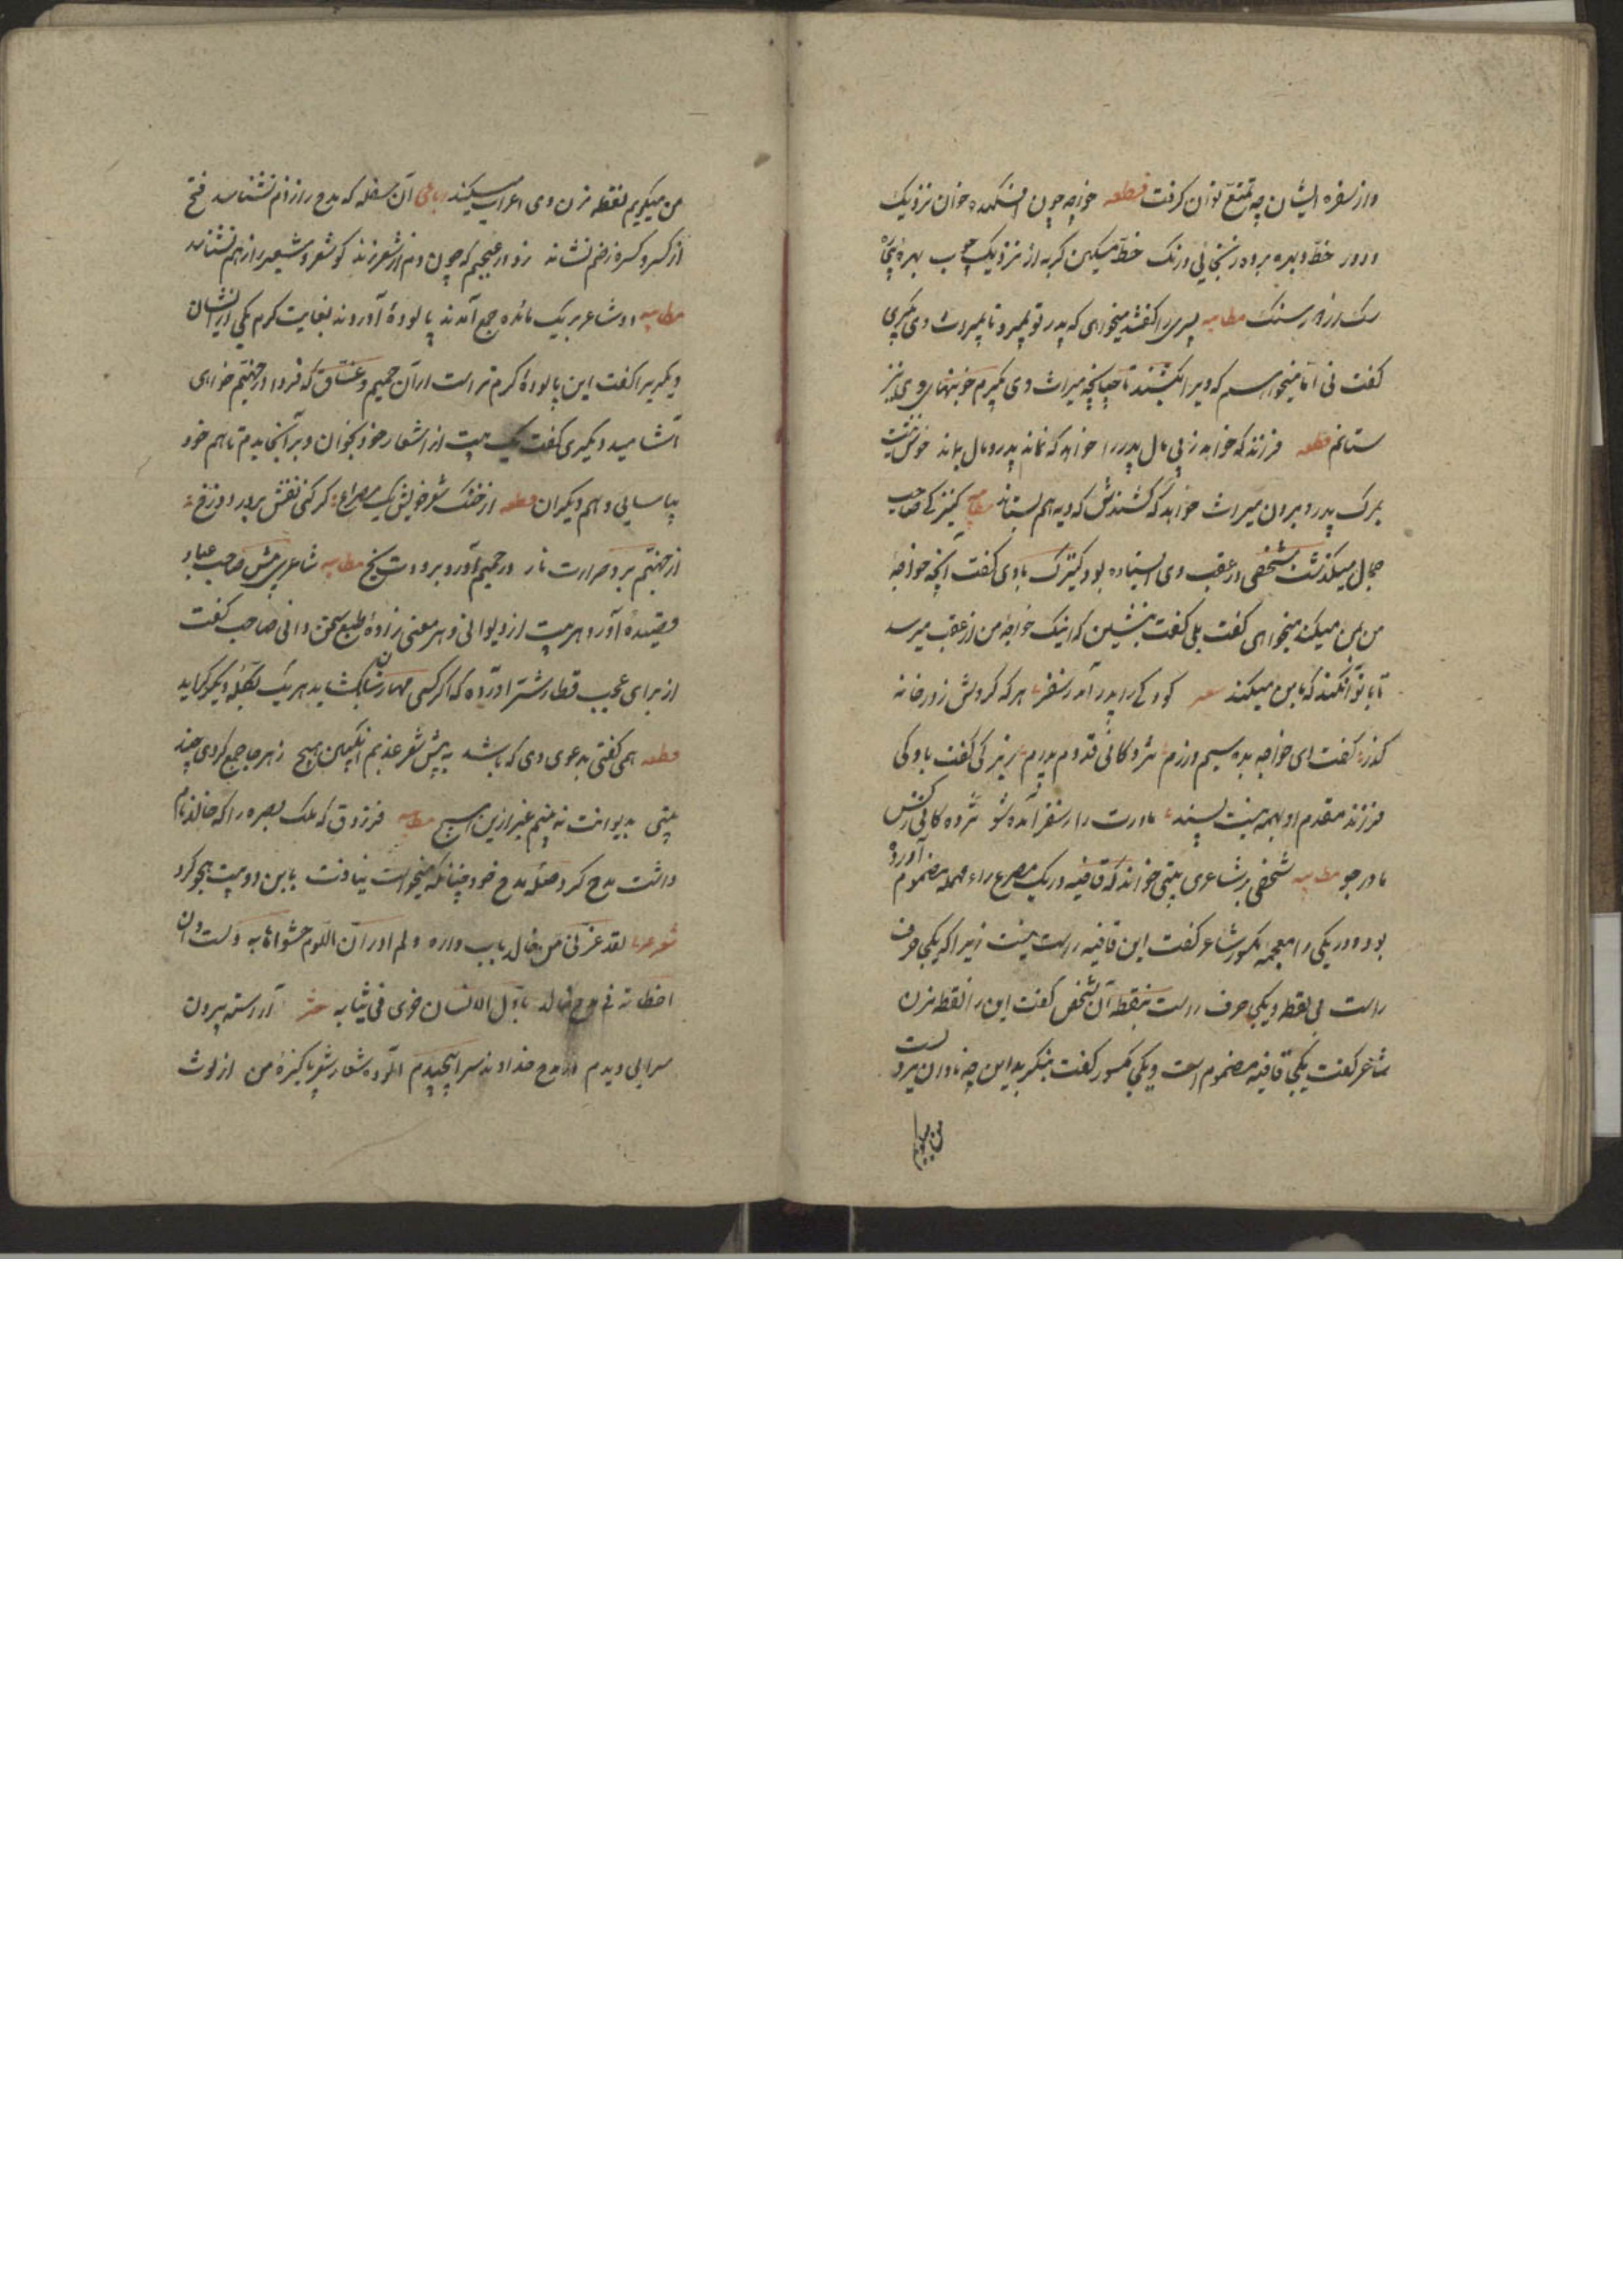 و از سفره ایشان چه تمتع توان گرفت قطعه خواجه چون افکنده خوان نزدیک
و دور خط و بهره برده نیک خط مسکین گربه از نزدیک چوب بهره
سک از در سنک مطایبه پسری را گفتند میخواهی که پدر تو بمیرد تا میراث وی گیری
گفت نی اما میخواهم که ویرا بکشند تا چنانچه میراث وی گیرم خونبهای وی نیز
ستانم قطعه فرزند که خواهد ز پی مال پدر را خواهد که نماند پدر و مال بماند خوش نیست
بمرک پدر و بردن میراث خواهد که کشندش که دیه هم بستاند مطایبه کنیزکی صاحب
جمال میگذشت شخصی در عقب وی ایستاده بود کنیزک با وی گفت آنچه خواجهٔ
من بمن میکند میخواهی گفت بلی گفت بنشین که اینک خواجهٔ من از عقب میرسد
تا با تو آن کند که با من میکند شعر کودکی را پدر آمد ز سفر هر که کردش ز در خانه
گذر گفت ای خواجه بده سیم و زرم مژدکانی قدوم پدرم زیرکی گفت با وی کی
فرزند مقدم او بهمه نیست پسند مادرت را ز سفر آمده شو مژده کانی ز کس
مادر جو مطایبه شخصی بر شاعری بیتی خواند که قافیه در یک مصرع راء مهمله مضموم آورده
بود و در یکی زا معجمه مکسور شاعر گفت این قافیه راست نیست زیرا که یکی حرف
راست بی نقطه و یکی حرف زاست بنقطه آن شخص گفت این را نقطه مزن
شاعر گفت یکی قافیه مضموم است و یکی مکسور گفت بنگرید این چه نادان مردیست
من میگویم
من میگویم نقطه مزن وی اعراب میکند رباعی آن سفله که مدح را ز ذم نشناسد فتح
از کسر و کسره ز ضم نشناسد زو در عجبم که چون دم از شعر زند کو شعر و شعیر را ز هم نشناسد
مطایبه دو شاعر بر یک مائده جمع آمدند پالودهٔ آوردند بغایت گرم یکی از ایشان
دیگریرا گفت این پالوده گرم تر است از آن حمیم و غساق که فردا در جهنم خواهی
آشامید دیگری گفت یک بیت از اشعار خود بخوان و بر آنجا بدم تا هم خود
بیاسایی و هم دیگران قطعه از خنک شعر خویش یک مصراع گر کنی نقش بر در دوزخ
از جهنم برد حرارت نار در حمیم آورد برودت یخ مطایبه شاعری پیش صاحب عباد
قصیدهٔ آورد هر بیت از دیوانی و هر معنی زادهٔ طبع سخن دانی صاحب گفت
از برای عجیب قطار شتر آورده که اگر کسی مهار شان بکشاید هر یک بگلهٔ دیگر گراید
قطعه همی گفتی بدعوی دی که باشد به پیش شعر عذبم انگبین هیچ ز هر جا جمع کردی چند
بیتی بدیوانت نه بینم غیر ازین هیچ مطایبه فرزدق که ملک بصره را که خالد نام
داشت مدح کرد صلهٔ مدح خود چنانکه میخواست نیافت باین دو بیت هجو کرد
شعر عربی لقد غرنی من خالد باب داره و لم ادر ان اللوم حشو اهابه و لست وان
اخطات فی مدح خالد باول انسان خری فی ثیابه شعر آراسته بیرون
سرایی دیدم از مدح خداوند سرا پیچیدم آلوده شعار شعر پاکیزهٔ من از لوث